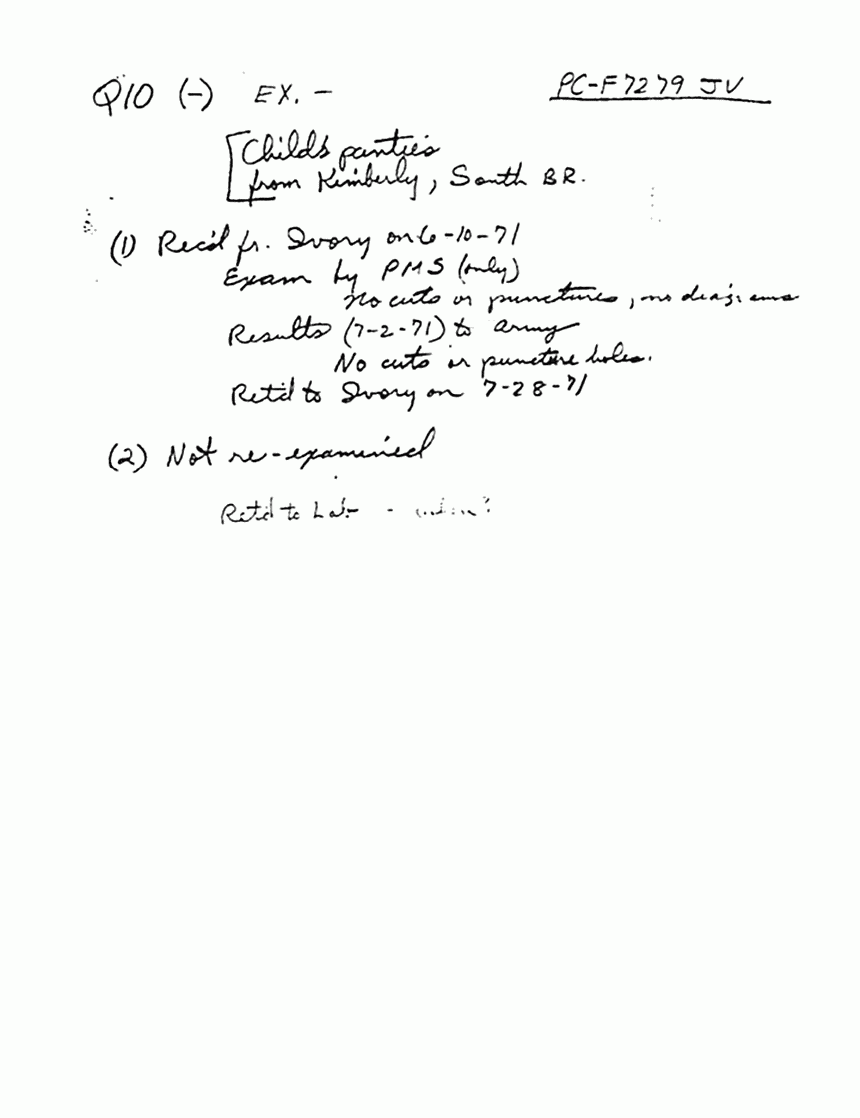 Q10 (-) EX. - PC-F7279 JV
[Child's panties
from Kimberly, South BR.
(1) Rec'd fr. Ivory on 6-10-71
Exam by PMS (only)
No cuts or punctures, no diagrams
Results (7-2-71) to army
No cuts or puncture holes.
Ret'd to Ivory on 7-28-71
(2) Not re-examined
Ret'd to Lab -